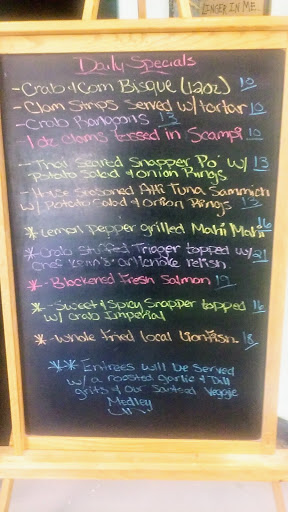 LINGER IN ME...
Daily Specials
- Crab & Corn Bisque (12oz) 10
- Clam Strips Served w/ tartar 10
- Crab Rangoons 13
1 dz Clams tossed in Scampi 10
- Thai Seared Snapper Po' w/ 13
Potato Salad & onion Rings
- House Seasoned Ahi Tuna Sammich
w/ Potato Salad & Onion Rings 13
* Lemon Pepper grilled Mahi Mahi 16
* - Crab Stuffed Trigger topped w/ 21
Chef artichoke relish
* - Blackened Fresh Salmon
* - Sweet & Spicy Snapper topped 16
w/ Crab Imperial
* - Whole fried local Lionfish 18
** Entrees will be served
w/ a roasted garlic & Dill
grits & our Sauteed Veggie
Medley